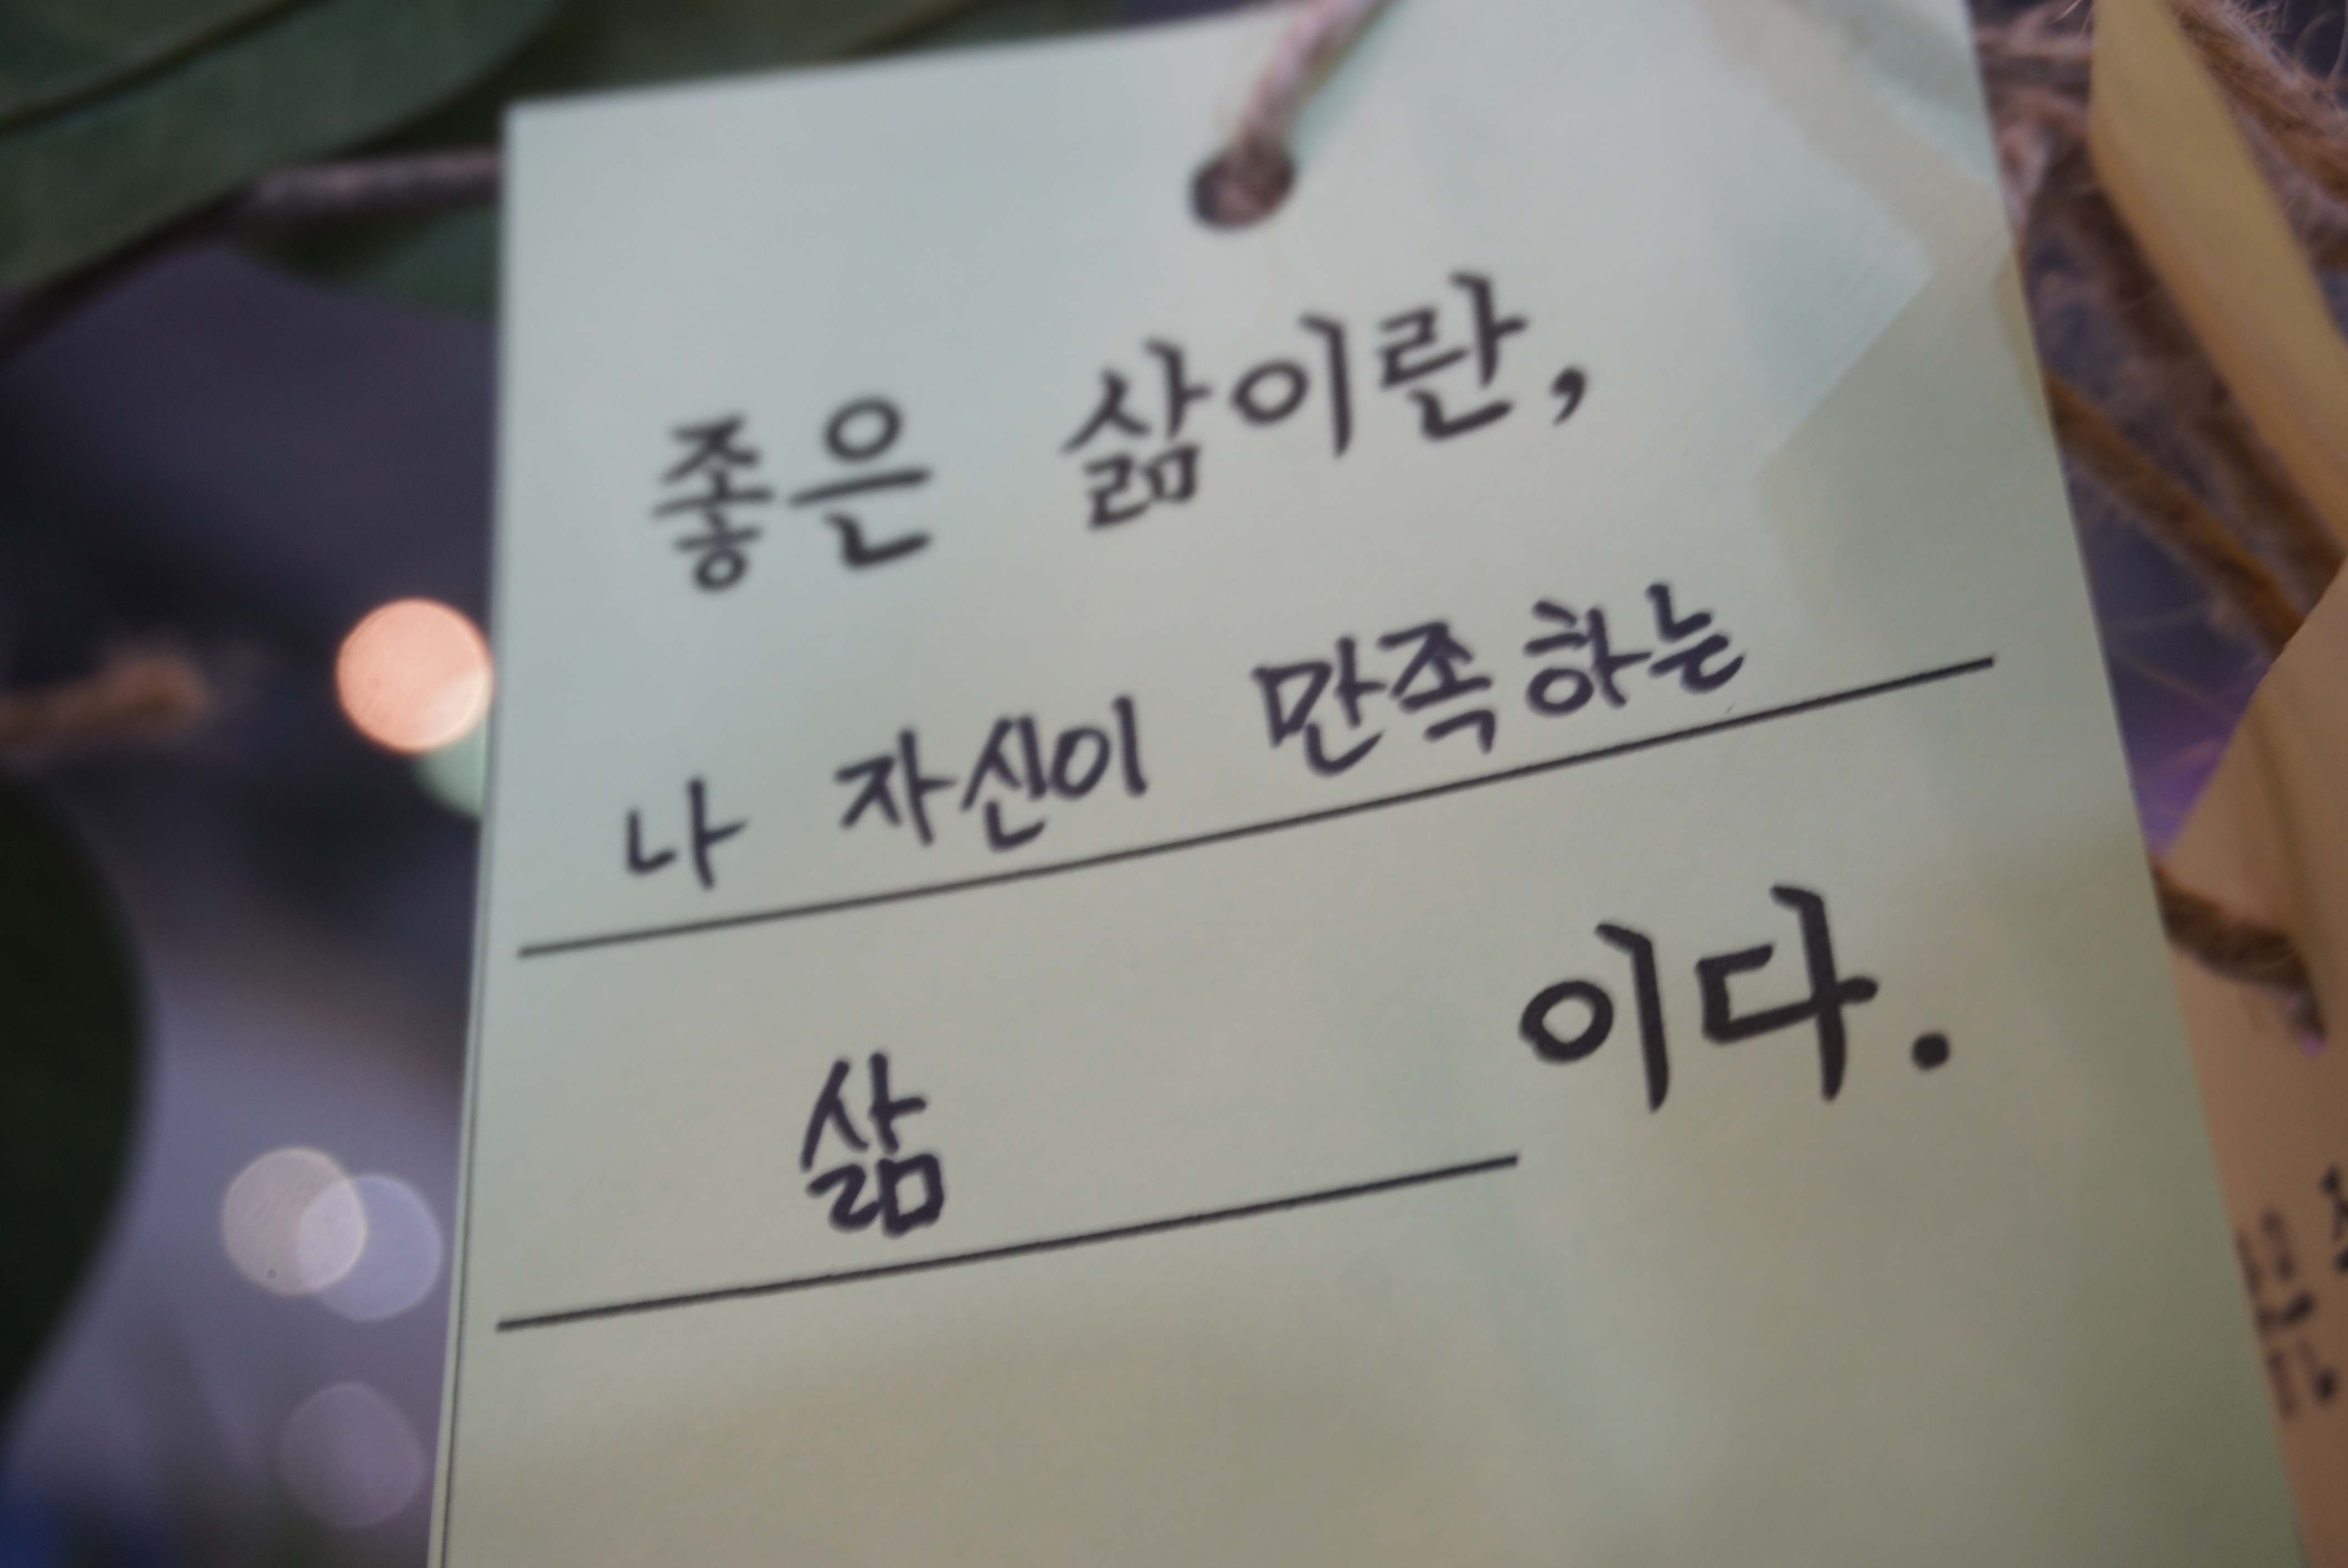 좋은 삶이란,
나 자신이 만족하는
삶 이다.